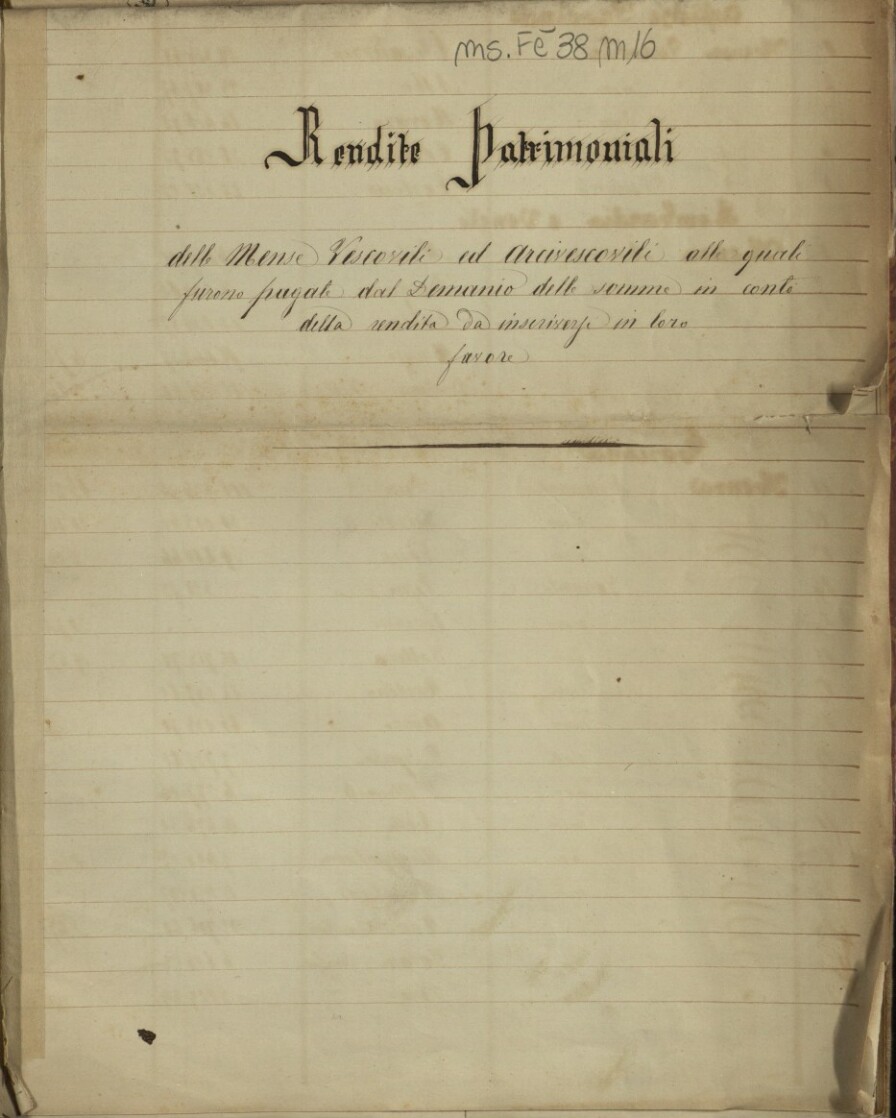 ms. Fē 38 m/6
Rendite Patrimoniali
delle Mense Vescovili ed Arcivescovili alle quali
furono pagate dal Demanio delle somme in conto
della rendita da inscriversi in loro
favore